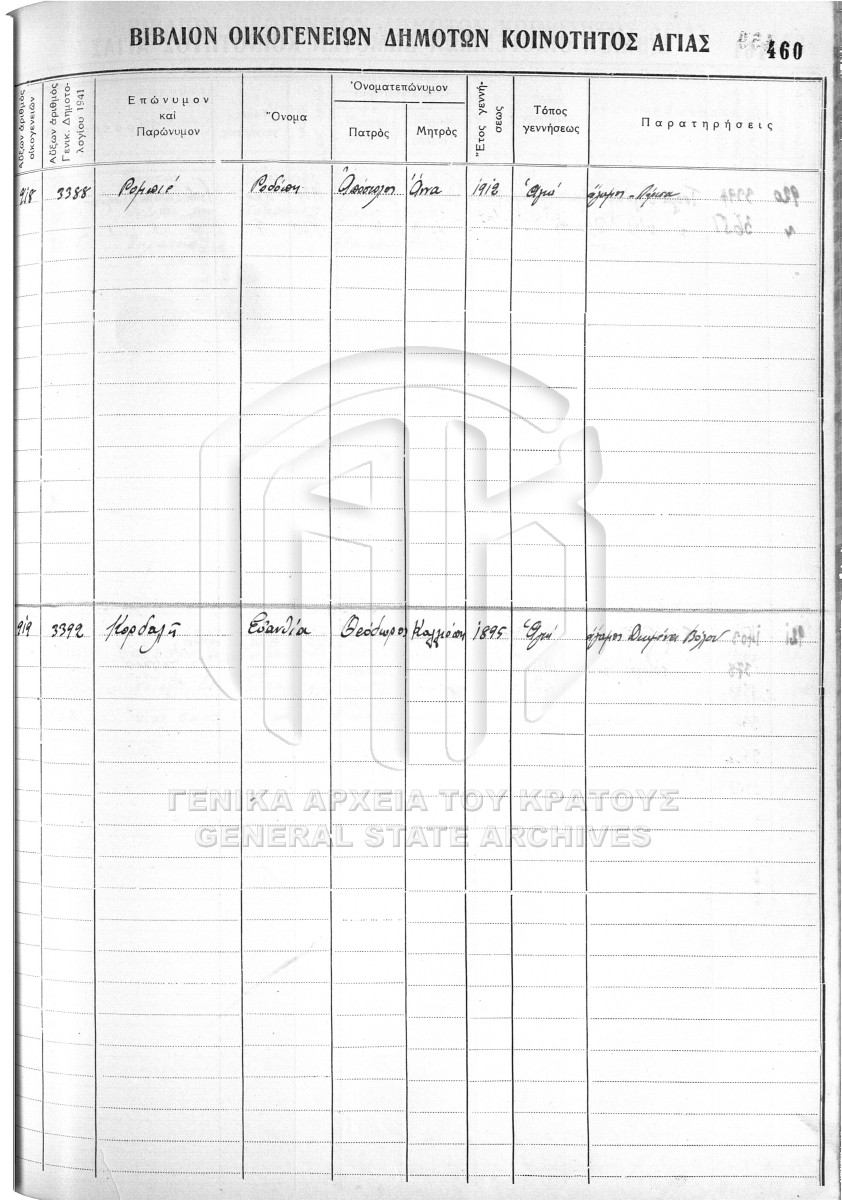 ΒΙΒΛΙΟΝ ΟΙΚΟΓΕΝΕΙΩΝ ΔΗΜΟΤΩΝ ΚΟΙΝΟΤΗΤΟΣ ΑΓΙΑΣ 460
Αὔξων ἀριθμὸς οἰκογενειῶν
Αὔξων ἀριθμὸς Γενικ. Δημοτολογίου 1941
Ἐπώνυμον καὶ Παρώνυμον
Ὄνομα
Ὀνοματεπώνυμον
Πατρὸς Μητρὸς
Ἔτος γεννήσεως
Τόπος γεννήσεως
Παρατηρήσεις
918 3388 Ροδόπη Ἀπόστολος Ἄννα 1912 Ἁγιά ἄγαμος
919 3392 Κορδαλῆ Εὐανθία Θεόδωρος Καλλιόπη 1895 Ἁγιά ἄγαμος Βόλου
ΓΕΝΙΚΑ ΑΡΧΕΙΑ ΤΟΥ ΚΡΑΤΟΥΣ
GENERAL STATE ARCHIVES